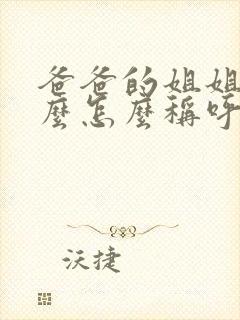 爸爸的姐姐
麼怎麼稱呼
沃捷